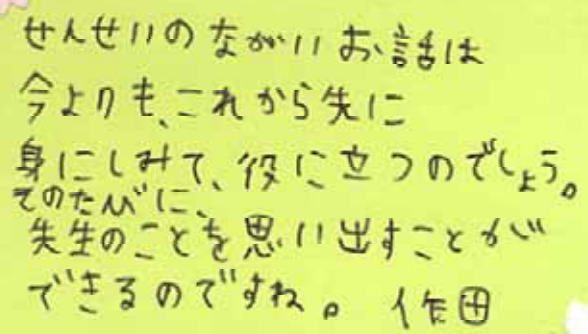 せんせいの ながい お話は
今よりも、これから先に
身にしみて、役に立つのでしょう。
そのたびに、
先生のことを思い出すことが
できるのですね。 作田